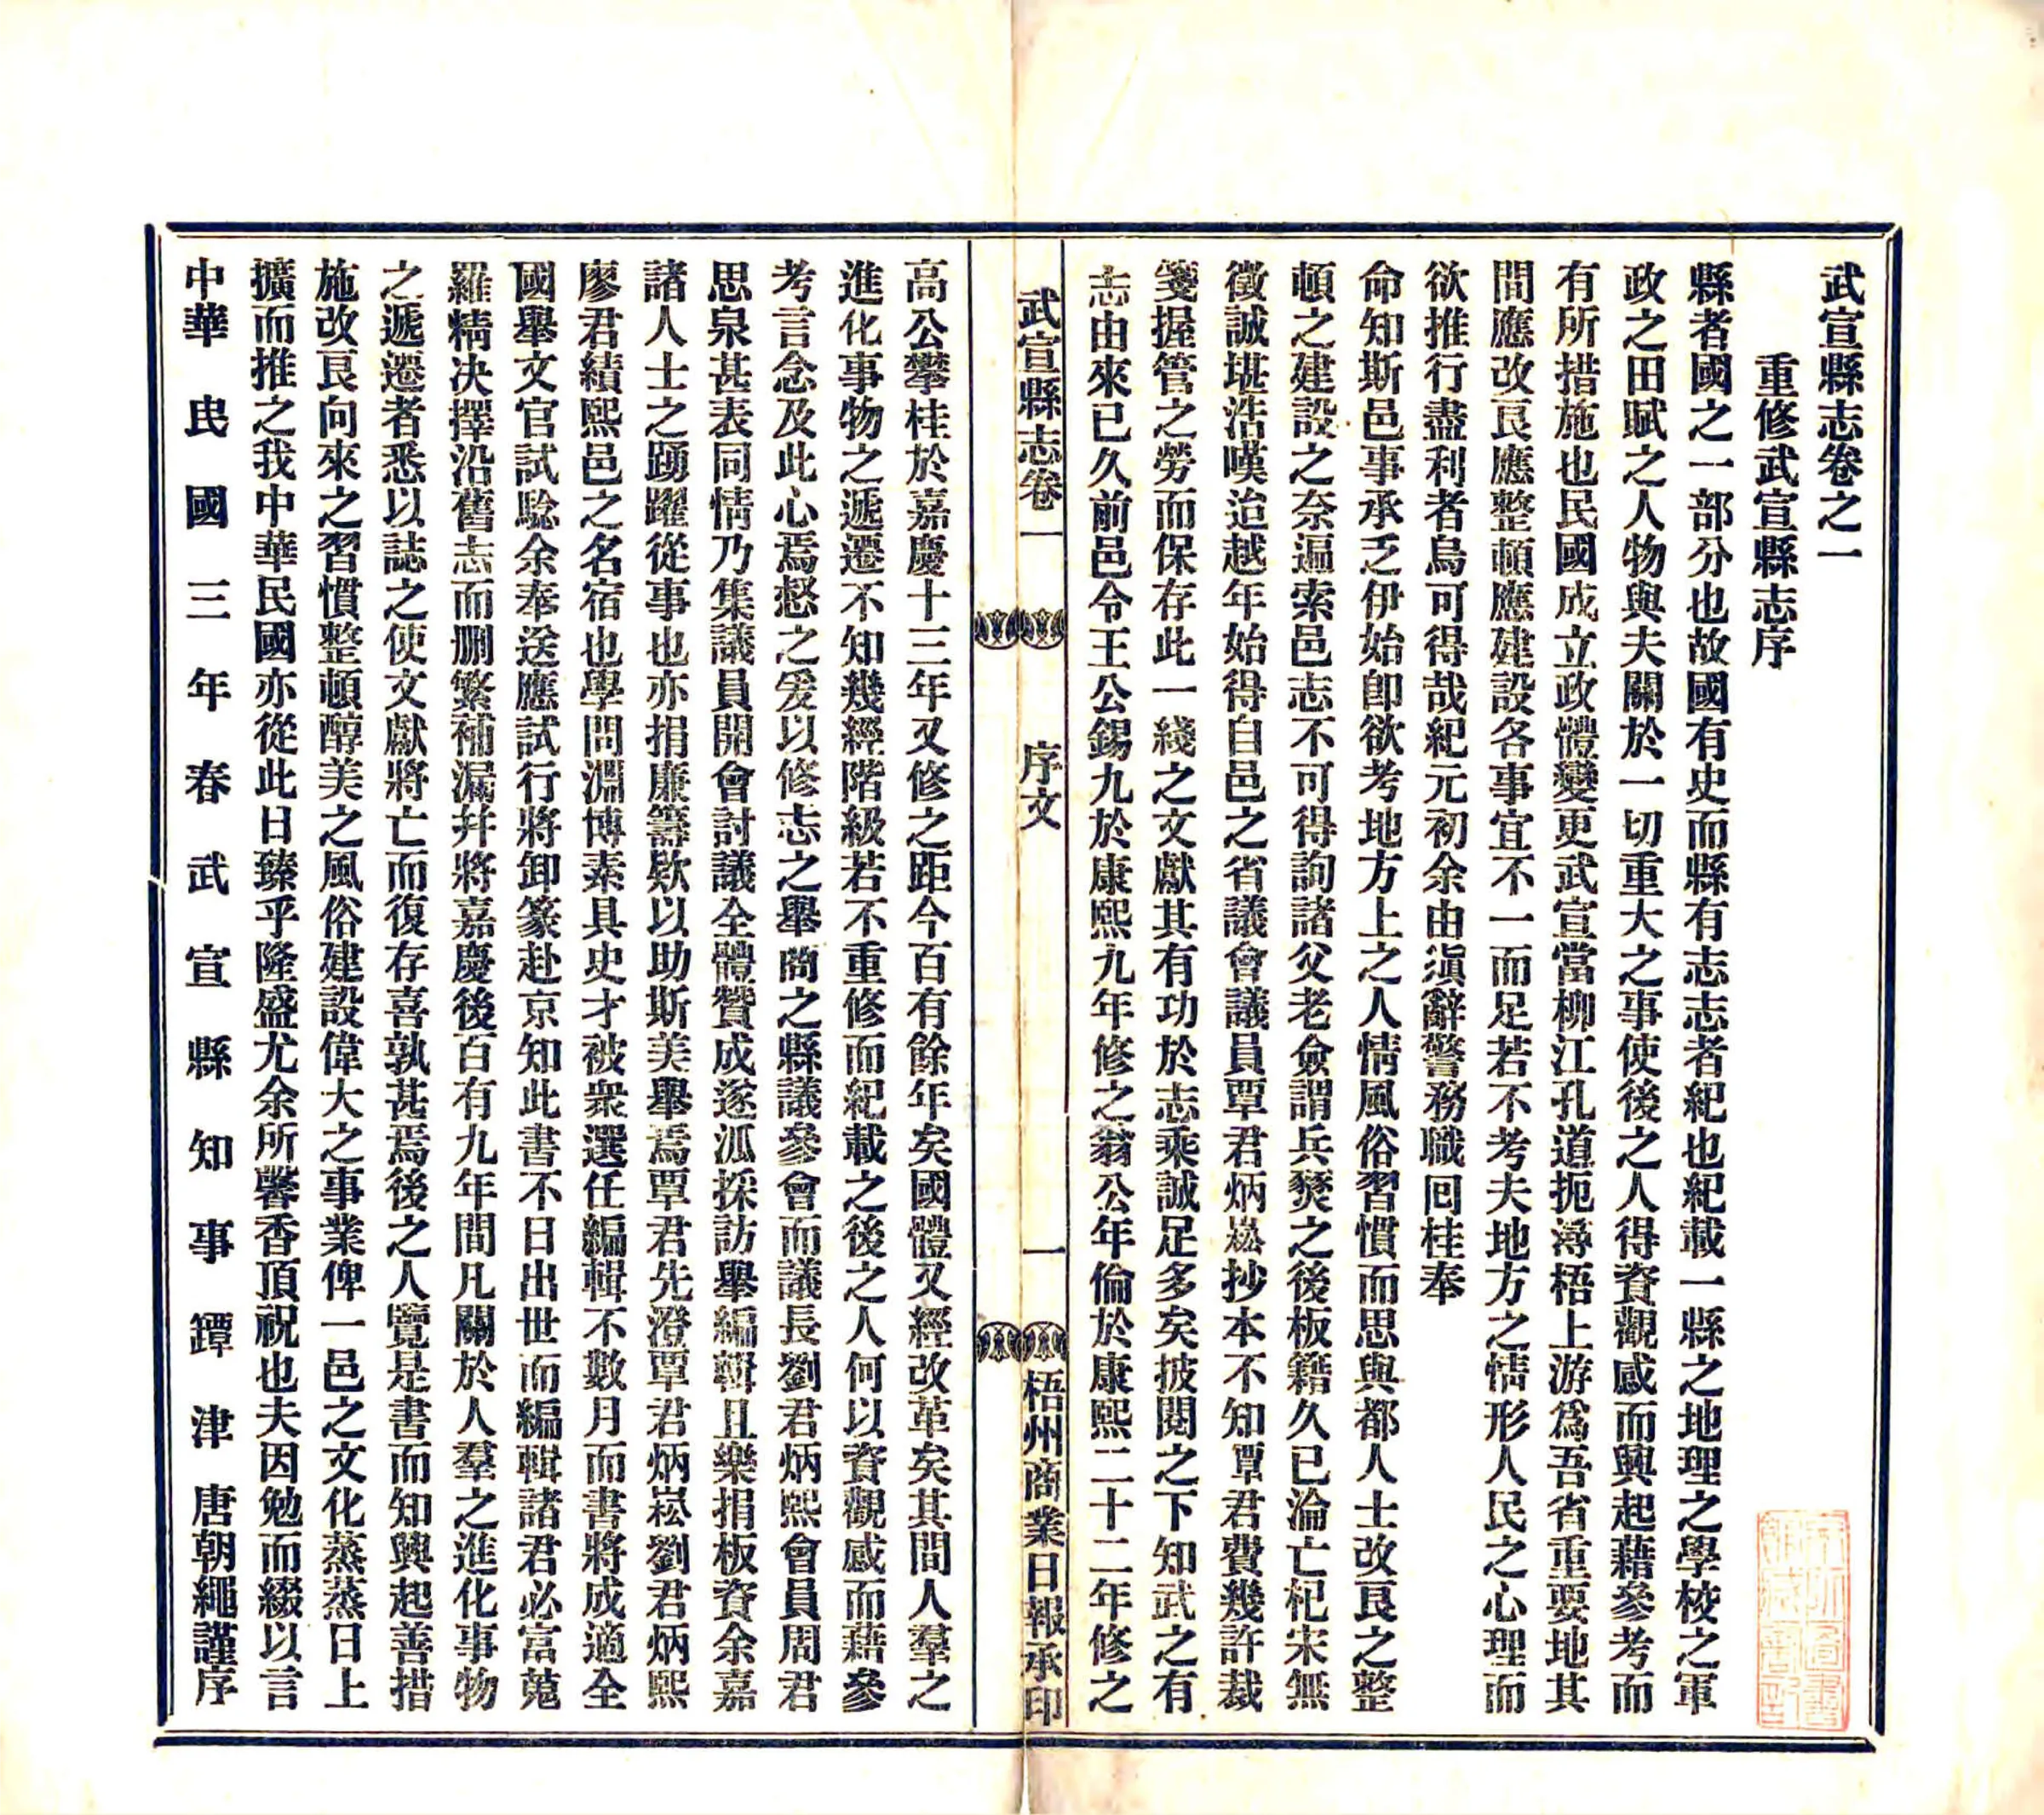 武宣縣志卷之一
重修武宣縣志序
縣者國之一部分也故國有史而縣有志志者紀也紀載一縣之地理之學校之軍
政之田賦之人物與夫關於一切重大之事使後之人得資觀感而興起藉參考而
有所措施也民國成立政體變更武宣當柳江孔道扼潯梧上游爲吾省重要地其
間應改良應整頓應建設各事宜不一而足若不考夫地方之情形人民之心理而
欲推行盡利者烏可得哉紀元初余由滇辭警務職回桂奉
命知斯邑事承乏伊始卽欲考地方上之人情風俗習慣而思與都人士改良之整
頓之建設之奈遍索邑志不可得詢諸父老僉謂兵燹之後板籍久已淪亡杞宋無
徵誠堪浩嘆迨越年始得自邑之省議會議員覃君炳崧抄本不知覃君費幾許裁
箋握管之勞而保存此一綫之文獻其有功於志乘誠足多矣披閱之下知武之有
志由來已久前邑令王公錫九於康熙九年修之翁公年倫於康熙二十二年修之
武宣縣志卷一 序文 一 梧州商業日報承印
高公攀桂於嘉慶十三年又修之距今百有餘年矣國體又經改革矣其間人羣之
進化事物之遞遷不知幾經階級若不重修而紀載之後之人何以資觀感而藉參
考言念及此心焉惄之爰以修志之舉商之縣議參會而議長劉君炳熙會員周君
思泉甚表同情乃集議員開會討議全體贊成遂泒採訪舉編輯且樂捐板資余嘉
諸人士之踴躍從事也亦捐廉籌欵以助斯美舉焉覃君先澄覃君炳崧劉君炳熙
廖君績熙邑之名宿也學問淵博素具史才被衆選任編輯不數月而書將成適全
國舉文官試驗余奉送應試行將卸篆赴京知此書不日出世而編輯諸君必富蒐
羅精决擇沿舊志而删繁補漏幷將嘉慶後百有九年間凡關於人羣之進化事物
之遞遷者悉以誌之使文獻將亡而復存喜孰甚焉後之人覽是書而知興起善措
施改良向來之習慣整頓醇美之風俗建設偉大之事業俾一邑之文化蒸蒸日上
擴而推之我中華民國亦從此日臻乎隆盛尤余所馨香頂祝也夫因勉而綴以言
中華民國三年春武宣縣知事鐔津唐朝繩謹序